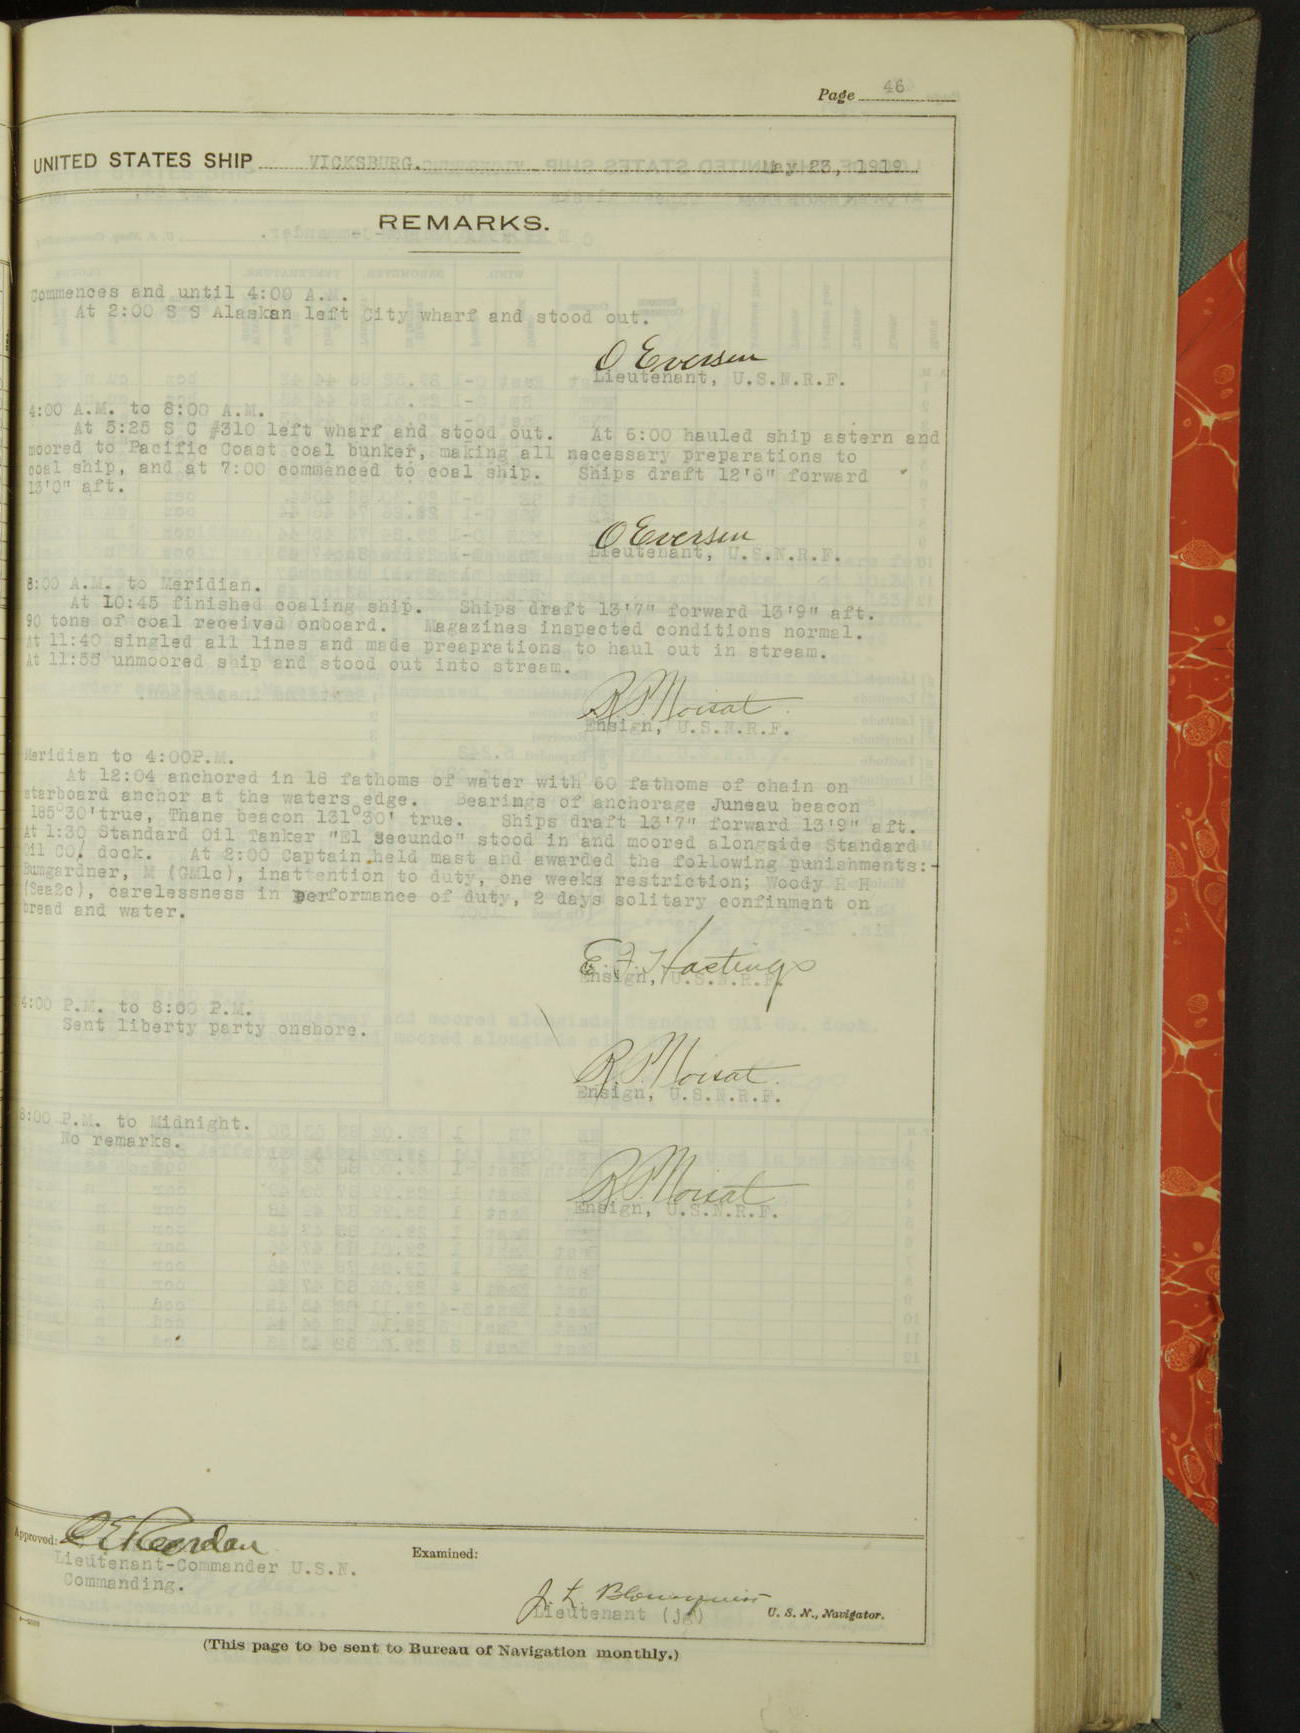 Page 46
UNITED STATES SHIP VICKSBURG. May 23, 1919
REMARKS.
Commences and until 4:00 A.M.
At 2:00 S S Alaskan left City wharf and stood out.
O Eversen
Lieutenant, U.S.N.R.F.
4:00 A.M. to 8:00 A.M.
At 5:25 S C #310 left wharf and stood out. At 6:00 hauled ship astern and
moored to Pacific Coast coal bunker, making all necessary preparations to
coal ship, and at 7:00 commenced to coal ship. Ships draft 12'6" forward
13'0" aft.
O Eversen
Lieutenant, U.S.N.R.F.
8:00 A.M. to Meridian.
At 10:45 finished coaling ship. Ships draft 13'7" forward 13'9" aft.
90 tons of coal received onboard. Magazines inspected conditions normal.
At 11:40 singled all lines and made preaprations to haul out in stream.
At 11:55 unmoored ship and stood out into stream.
R P Moisat
Ensign, U.S.N.R.F.
Meridian to 4:00P.M.
At 12:04 anchored in 18 fathoms of water with 60 fathoms of chain on
starboard anchor at the waters edge. Bearings of anchorage Juneau beacon
165°30'true, Thane beacon 131°30' true. Ships draft 13'7" forward 13'9" aft.
At 1:30 Standard Oil Tanker "El Secundo" stood in and moored alongside Standard
Oil CO. dock. At 2:00 Captain held mast and awarded the following punishments:-
Bumgardner, M (GM1c), inattention to duty, one weeks restriction; Woody H H
(Sea2c), carelessness in performance of duty, 2 days solitary confinment on
bread and water.
E. J. Hastings
Ensign, U.S.N.R.F.
4:00 P.M. to 8:00 P.M.
Sent liberty party onshore.
R. P. Moisat.
Ensign, U.S.N.R.F.
8:00 P.M. to Midnight.
No remarks.
R P Moisat
Ensign, U.S.N.R.F.
Approved: C E Reordan
Lieutenant-Commander U.S.N.
Commanding.
Examined:
J. L. Blomquist
Lieutenant (jg) U. S. N., Navigator.
(This page to be sent to Bureau of Navigation monthly.)